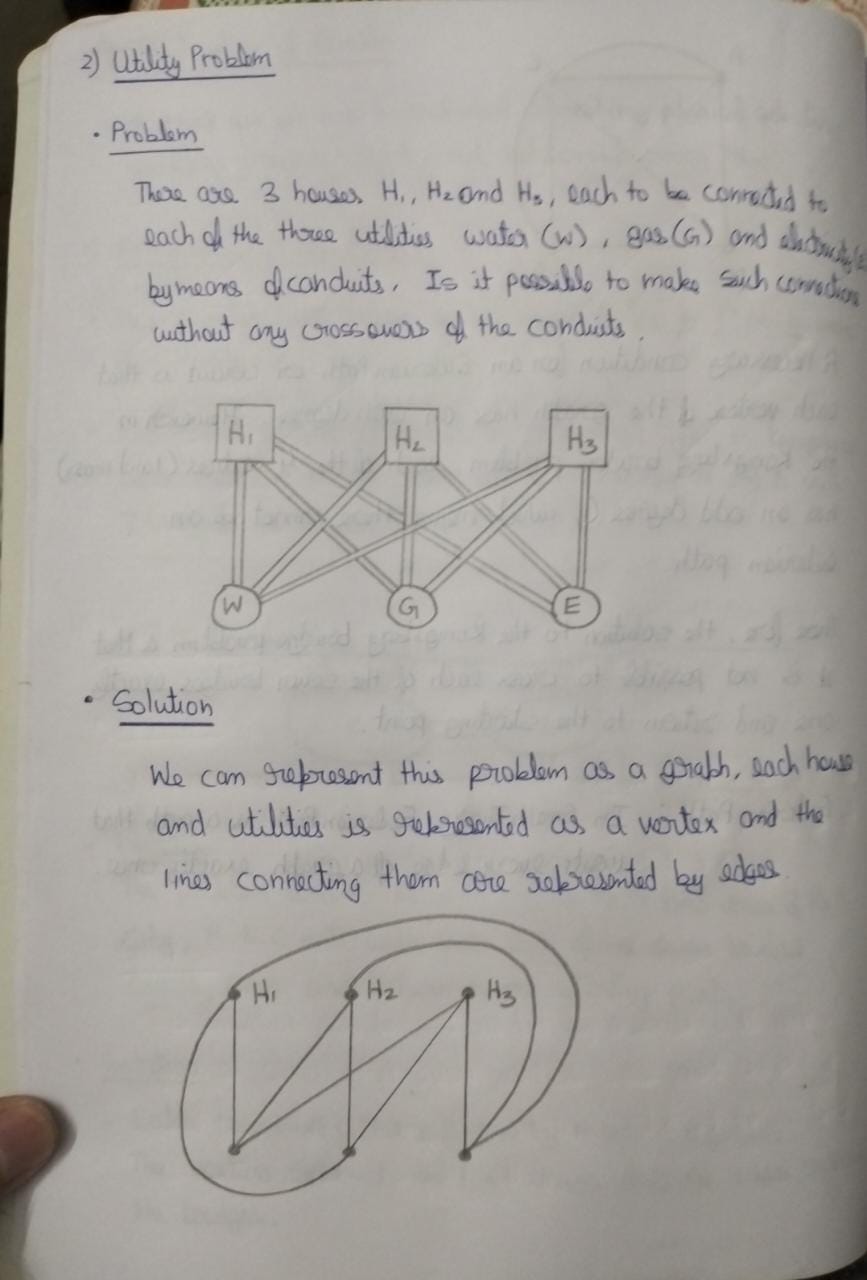 2) Utility Problem
• Problem
There are 3 houses H₁, H₂ and H₃, each to be connected to
each of the three utilities water (W), gas (G) and electricity (E)
by means of conduits. Is it possible to make such connections
without any crossovers of the conduits.
H₁ H₂ H₃
W G E
• Solution
We can represent this problem as a graph, each house
and utilities is represented as a vertex and the
lines connecting them are represented by edges.
H₁ H₂ H₃